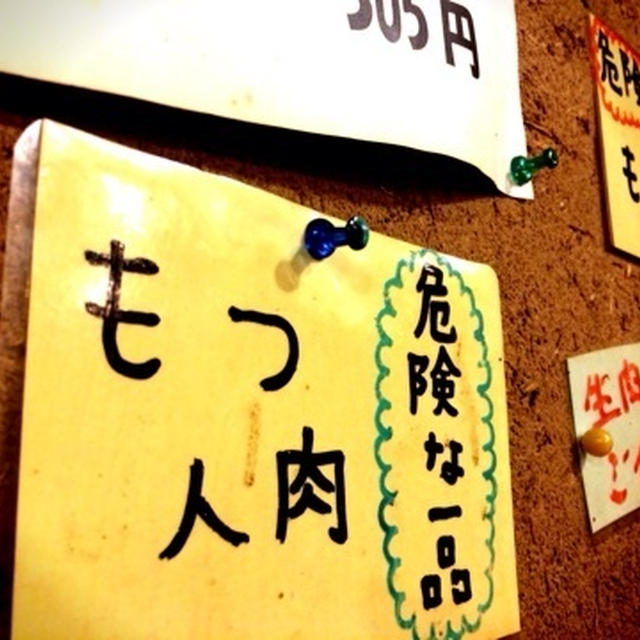 505円
危険な一品
もつ
人肉
危険
も
生肉